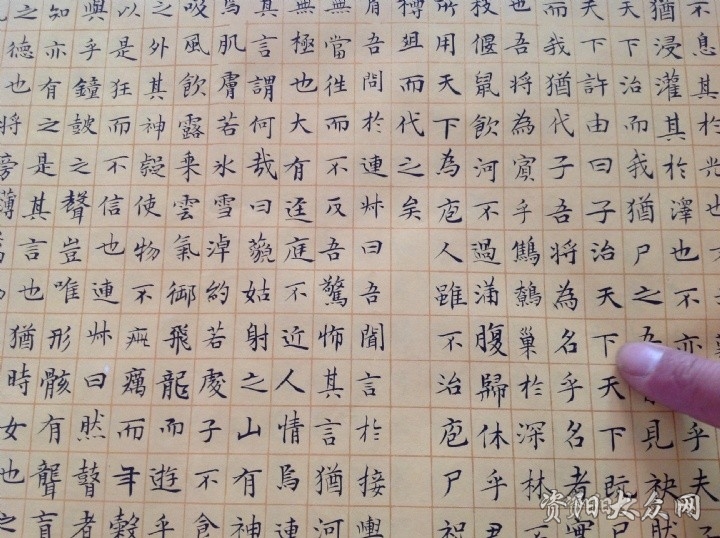 不息其於光也不
猶浸灌其於澤也不亦乎夫
天下治而我猶尸之吾見袂然
天下許由曰子治天下天下既
而我猶代子吾將為名乎名者實
也吾將為賓乎鷦鷯巢於深林不
枝偃鼠飲河不過滿腹歸休乎君
所用天下為庖人雖不治庖尸祝
樽俎而代之矣
肩吾問於連叔曰吾聞言於接輿
無當往而不反吾驚怖其言猶河
無極也大有逕庭不近人情焉連
其言謂何哉曰藐姑射之山有神
焉肌膚若冰雪淖約若處子不食
吸風飲露乘雲氣御飛龍而遊乎
之外其神凝使物不疵癘而年穀
以是狂而不信也連叔曰然瞽者
與乎鐘鼓之聲豈唯形骸有聾盲
知亦有之是其言也猶時女也之
之德也將旁薄
资阳大众网